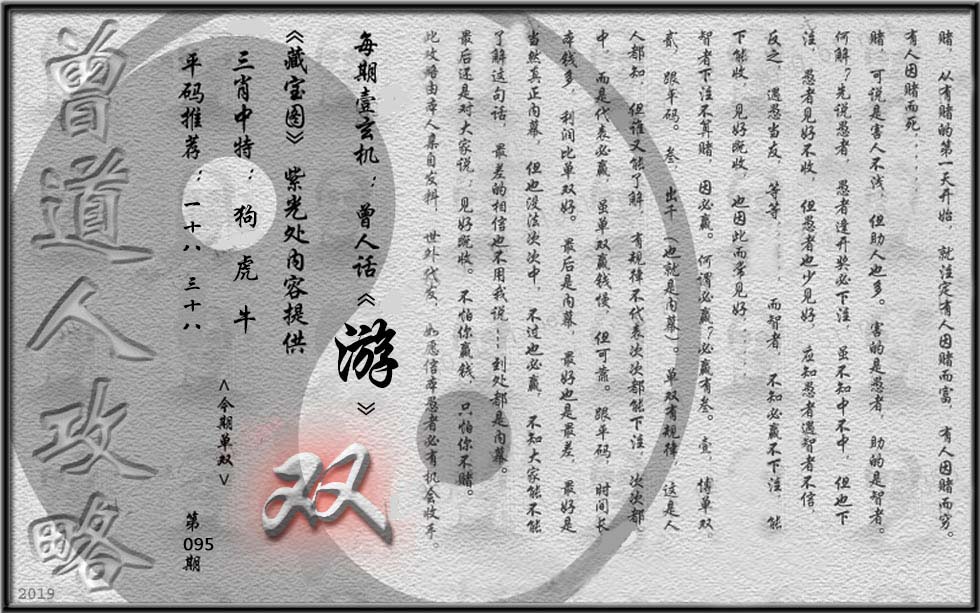 赌，从有赌的第一天开始，就注定有人因赌而富，有人因赌而穷。
有人因赌而死．．．．．
赌，可说是害人不浅，但助人也多。害的是愚者，助的是智者。
何解？先说愚者，愚者逢开奖必下注，虽不知中不中，但也下
注，愚者见好不收，但愚者也少见好，应知愚者遇智者不信，
反之，遇愚当友，等等．．．．．而智者，不知必赢不下注，能
下能收，见好既收，也因此而常见好．．．．
智者下注不算赌，因必赢。何谓必赢？必赢有叁。壹，博单双，
贰，跟平码。叁，出千（也就是内幕）。单双有规律，这是人
人都知，但谁又能了解，有规律不代表次次都能下注，次次都
中，而是代表必赢，虽单双赢钱慢，但可靠。跟平码，时间长
本钱多，利润比单双好。最后是内幕，最好也是最差，最好是
当然真正内幕，但也没法次次中，不过也必赢，不知大家能不能
了解这句话，最差的相信也不用我说┅到处都是内幕。
最后还是对大家说：见好既收。不怕你赢钱，只怕你不赌。
此攻略由本人集自发料，世外代发，如愿信本愚者必有机会收手。
每期壹玄机：曾人话《游》
《藏宝图》紫光处内容提供
三肖中特：狗 虎 牛
平码推荐：一十八 三十八
<今期单双>
双
第095期
曾道人攻略
2019